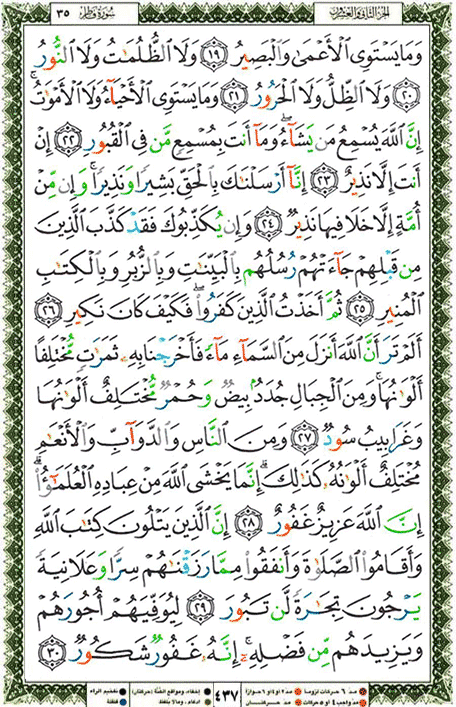 سورة فاطر ٣٥ الجزء الثاني والعشرين
وَمَا يَسْتَوِى ٱلْأَعْمَىٰ وَٱلْبَصِيرُ ١٩ وَلَا ٱلظُّلُمَـٰتُ وَلَا ٱلنُّورُ
٢٠ وَلَا ٱلظِّلُّ وَلَا ٱلْحَرُورُ ٢١ وَمَا يَسْتَوِى ٱلْأَحْيَآءُ وَلَا ٱلْأَمْوَٰتُ ۚ
إِنَّ ٱللَّهَ يُسْمِعُ مَن يَشَآءُ ۖ وَمَآ أَنتَ بِمُسْمِعٍ مَّن فِى ٱلْقُبُورِ ٢٢ إِنْ
أَنتَ إِلَّا نَذِيرٌ ٢٣ إِنَّآ أَرْسَلْنَـٰكَ بِٱلْحَقِّ بَشِيرًا وَنَذِيرًا ۚ وَإِن مِّنْ
أُمَّةٍ إِلَّا خَلَا فِيهَا نَذِيرٌ ٢٤ وَإِن يُكَذِّبُوكَ فَقَدْ كَذَّبَ ٱلَّذِينَ
مِن قَبْلِهِمْ جَآءَتْهُمْ رُسُلُهُم بِٱلْبَيِّنَـٰتِ وَبِٱلزُّبُرِ وَبِٱلْكِتَـٰبِ
ٱلْمُنِيرِ ٢٥ ثُمَّ أَخَذْتُ ٱلَّذِينَ كَفَرُوا۟ ۖ فَكَيْفَ كَانَ نَكِيرِ ٢٦
أَلَمْ تَرَ أَنَّ ٱللَّهَ أَنزَلَ مِنَ ٱلسَّمَآءِ مَآءً فَأَخْرَجْنَا بِهِۦ ثَمَرَٰتٍ مُّخْتَلِفًا
أَلْوَٰنُهَا ۚ وَمِنَ ٱلْجِبَالِ جُدَدٌۢ بِيضٌ وَحُمْرٌ مُّخْتَلِفٌ أَلْوَٰنُهَا
وَغَرَابِيبُ سُودٌ ٢٧ وَمِنَ ٱلنَّاسِ وَٱلدَّوَآبِّ وَٱلْأَنْعَـٰمِ
مُخْتَلِفٌ أَلْوَٰنُهُۥ كَذَٰلِكَ ۗ إِنَّمَا يَخْشَى ٱللَّهَ مِنْ عِبَادِهِ ٱلْعُلَمَـٰٓؤُا۟ ۗ
إِنَّ ٱللَّهَ عَزِيزٌ غَفُورٌ ٢٨ إِنَّ ٱلَّذِينَ يَتْلُونَ كِتَـٰبَ ٱللَّهِ
وَأَقَامُوا۟ ٱلصَّلَوٰةَ وَأَنفَقُوا۟ مِمَّا رَزَقْنَـٰهُمْ سِرًّا وَعَلَانِيَةً
يَرْجُونَ تِجَـٰرَةً لَّن تَبُورَ ٢٩ لِيُوَفِّيَهُمْ أُجُورَهُمْ
وَيَزِيدَهُم مِّن فَضْلِهِۦٓ ۚ إِنَّهُۥ غَفُورٌ شَكُورٌ ٣٠
مد ٦ حركات لزوما مد ٢ او ٤ او ٦ جوازا إخفاء، ومواقع الغنة (حركتان) تفخيم الراء
مد واجب ٤ او ٥ حركات مد حركتان ٤٣٧ ادغام، ومالا يلفظ قلقلة